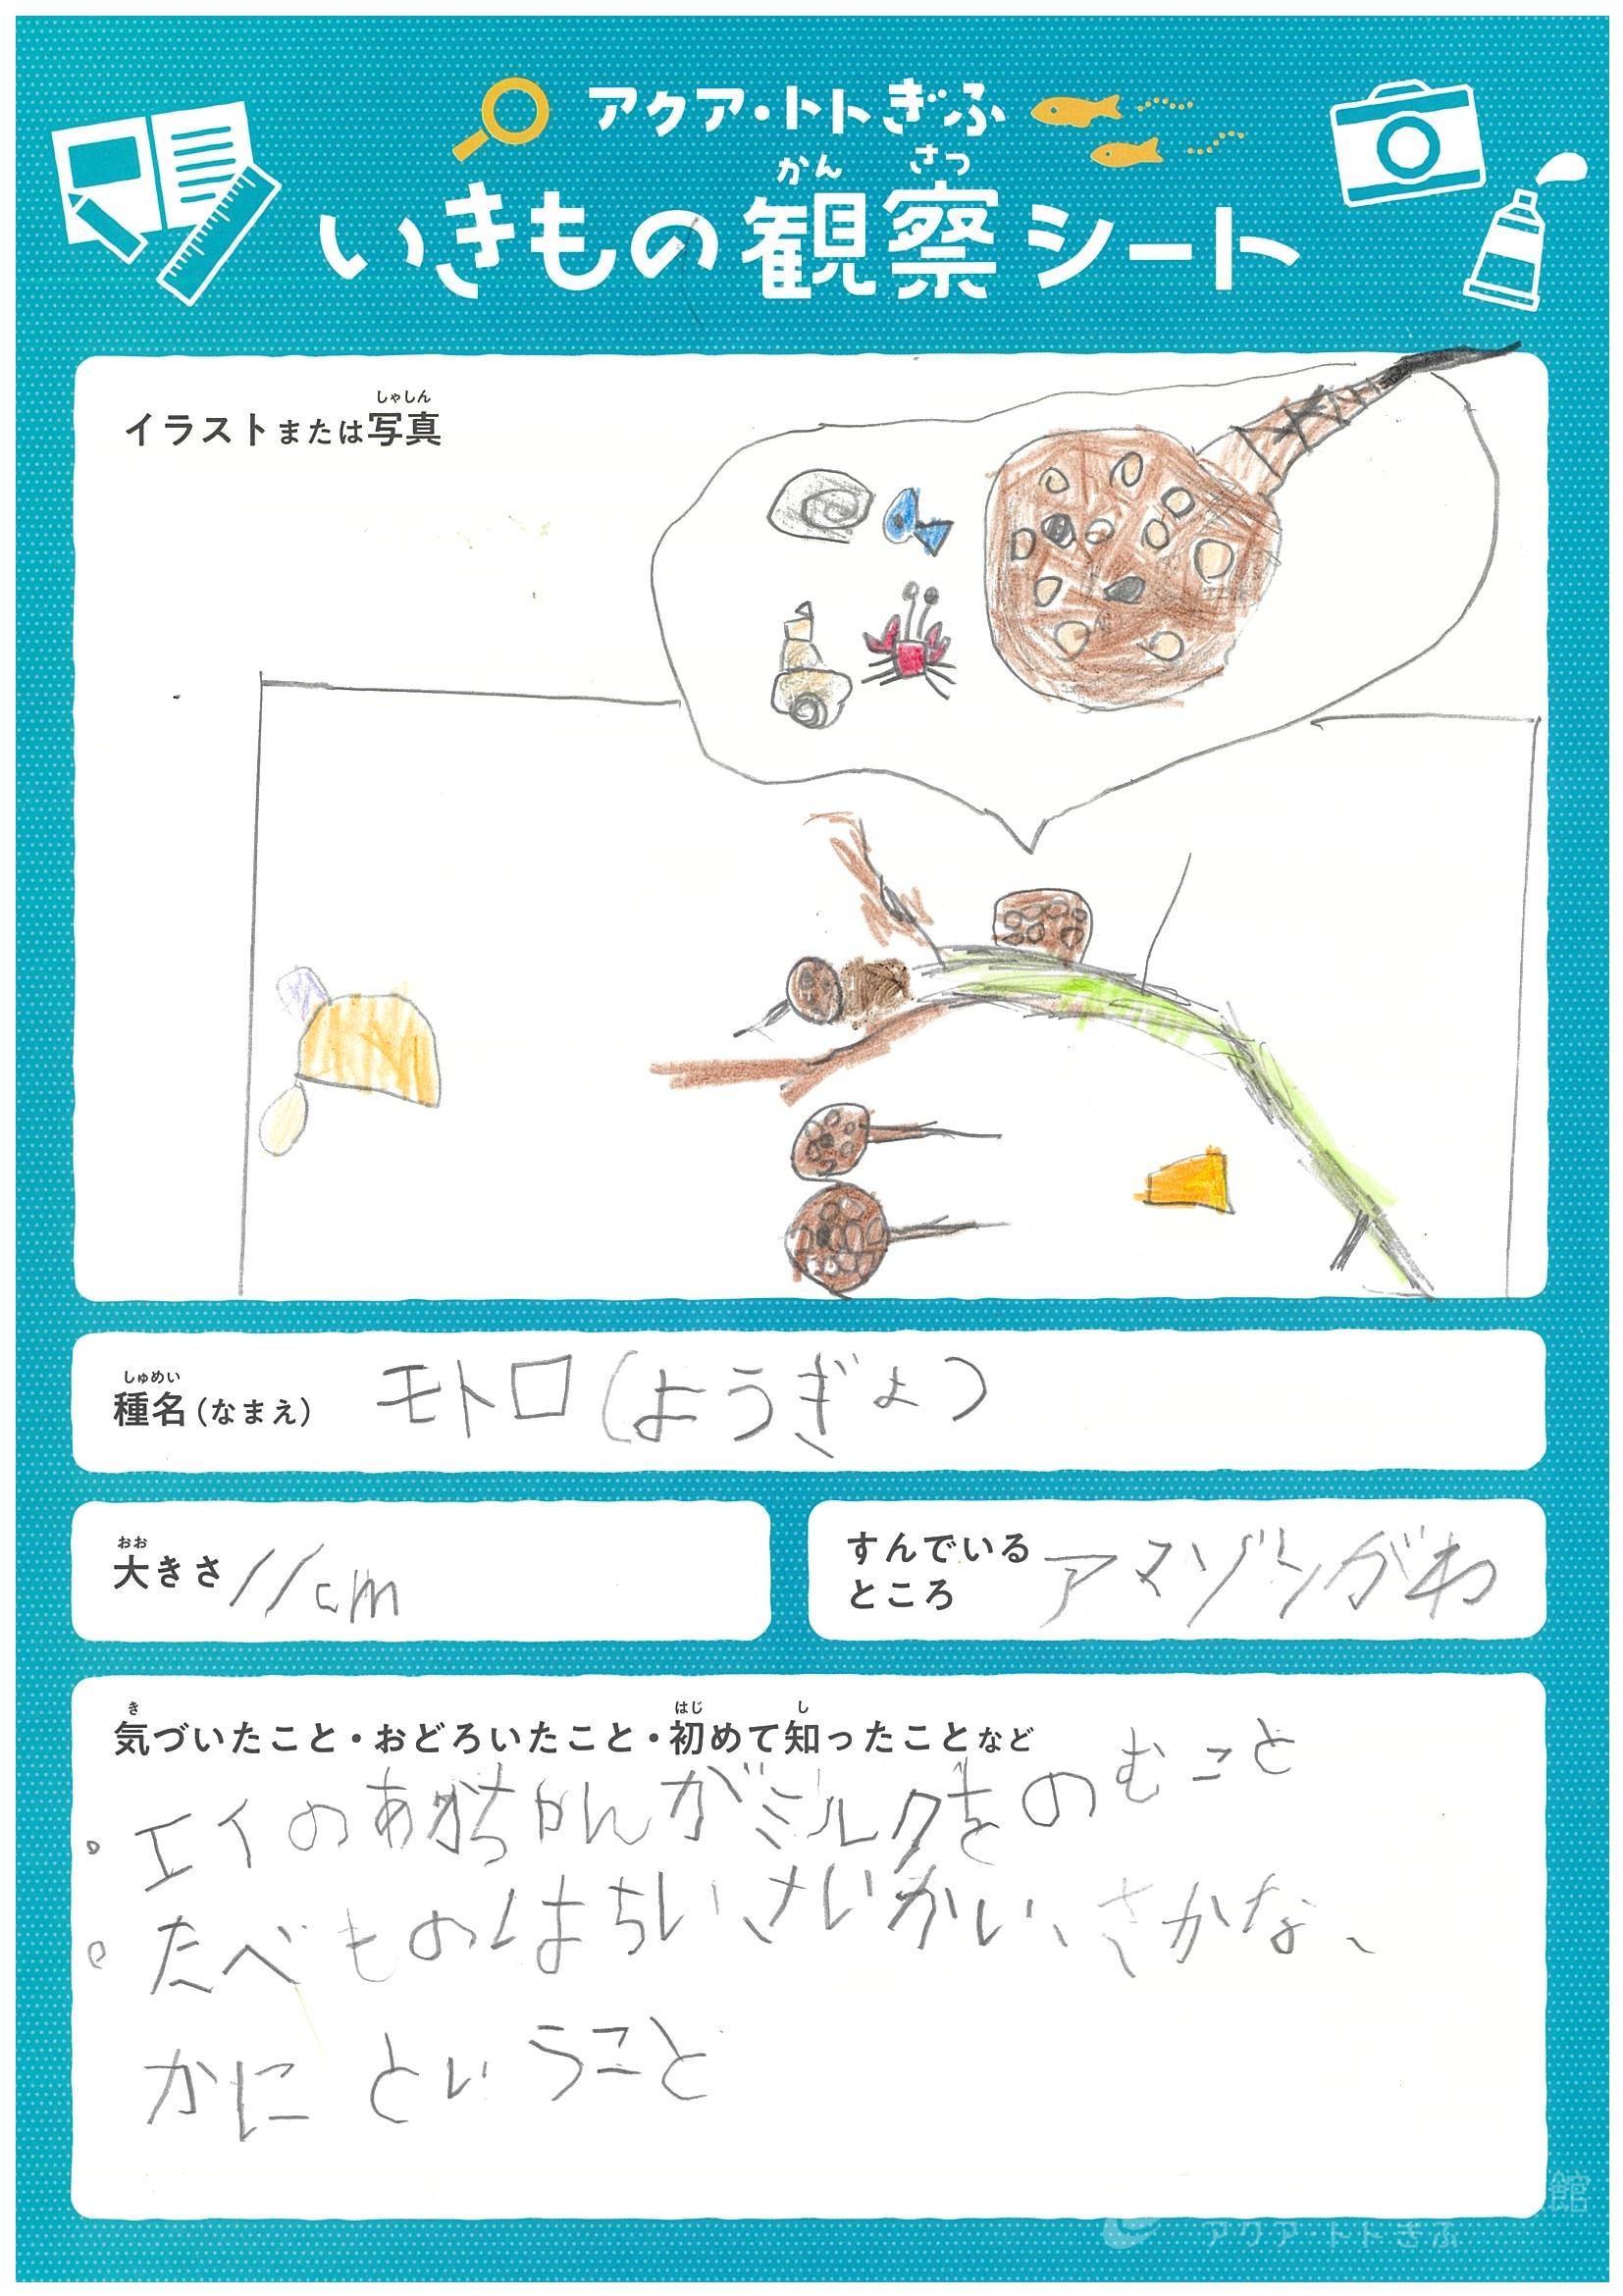 アクア・トトぎふ
かんさつ
いきもの観察シート
しゃしん
イラストまたは写真
しゅめい
種名(なまえ) モトロ(ようぎょ)
おお
大きさ 11cm
すんでいる
ところ アマゾンがわ
き はじ し
気づいたこと・おどろいたこと・初めて知ったことなど
・エイのあかちゃんがミルクをのむこと
・たべものはちいさいかい、さかな、
かにということ
館
アクア・トトぎふ